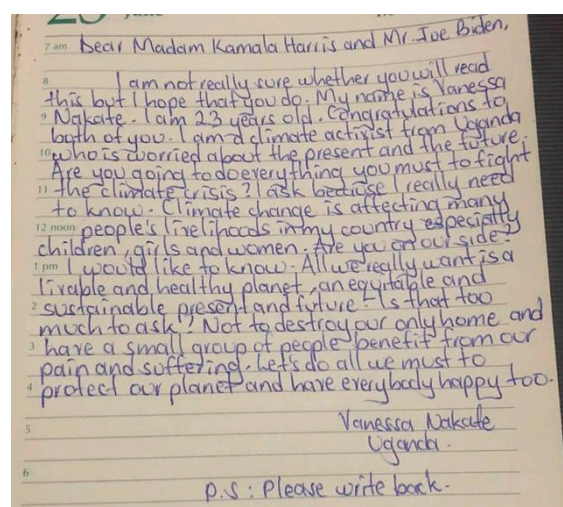 7 am Dear Madam Kamala Harris and Mr. Joe Biden,
8 I am not really sure whether you will read
this but I hope that you do. My name is Vanessa
9 Nakate. I am 23 years old. Congratulations to
both of you. I am a climate activist from Uganda
10 who is worried about the present and the future.
Are you going to do everything you must to fight
11 the climate crisis? I ask because I really need
to know. Climate change is affecting many
12 noon people's livelihoods in my country especially
children, girls and women. Are you on our side?
1 pm I would like to know. All we really want is a
livable and healthy planet, an equitable and
2 sustainable present and future. Is that too
much to ask? Not to destroy our only home and
3 have a small group of people benefit from our
pain and suffering. Let's do all we must to
4 protect our planet and have everybody happy too.
5 Vanessa Nakate
Uganda.
6
P.S: Please write back.